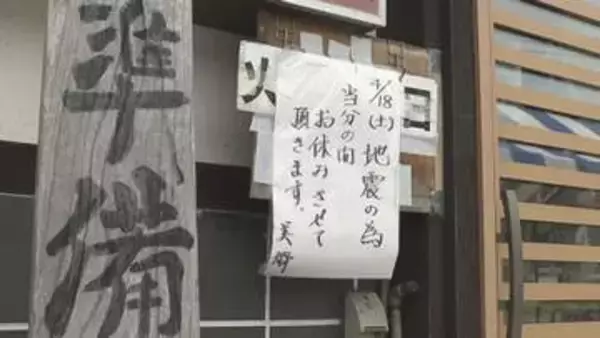 準備
火
日
/18(土) 地震の為
当分の間
お休みさせて
頂きます。
美